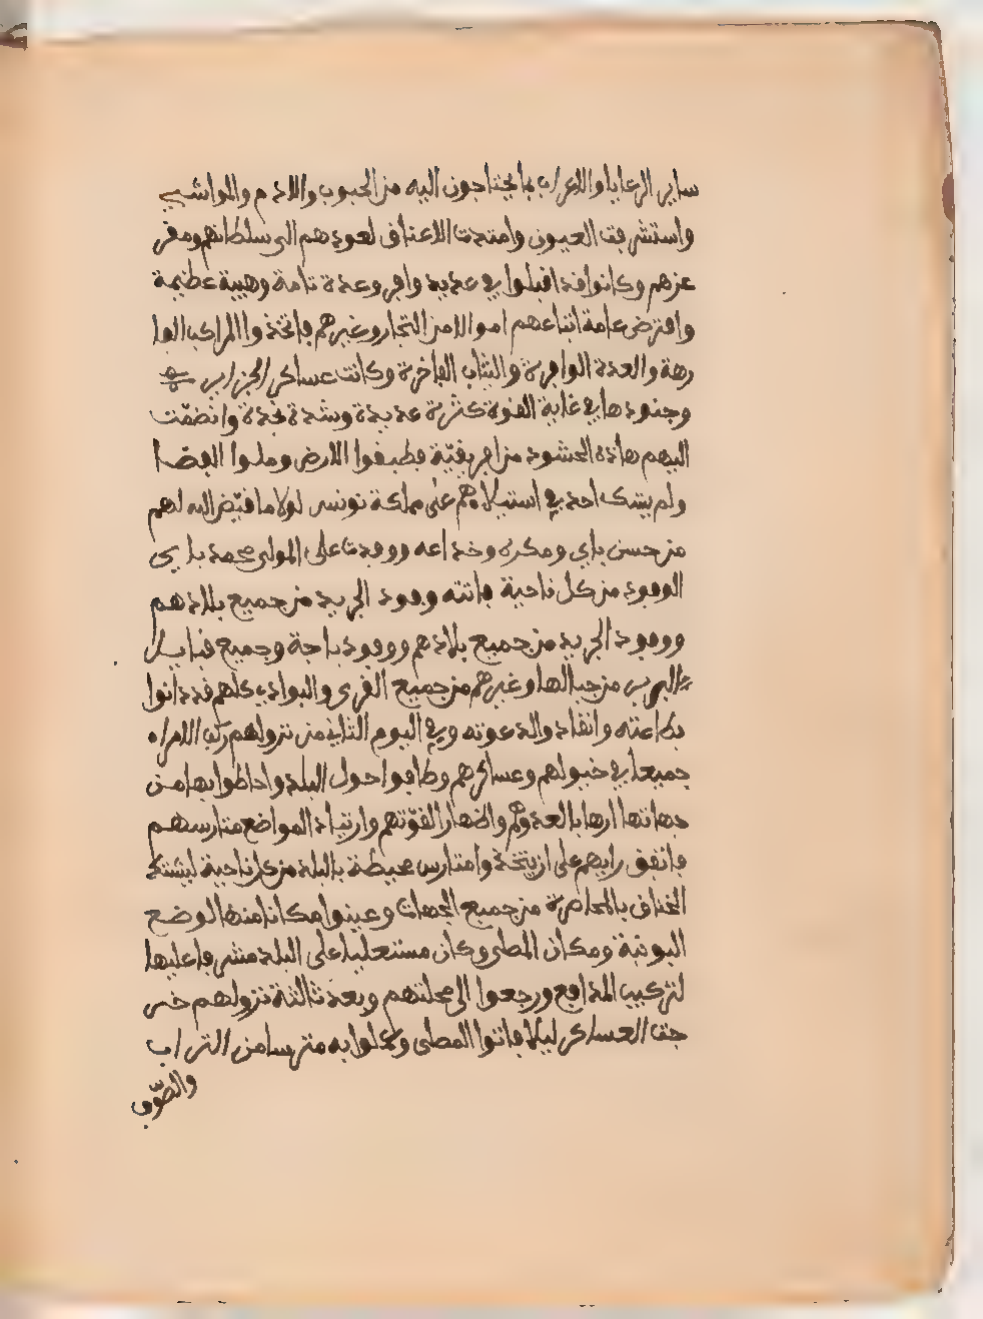 ساير الرعايا والاعراب بما يحتاجون اليه من الحبوب والادم والمواشي
واستشرفت العيون وامتدت الاعناق لعودهم الى سلطانهم ومقر
عزهم وكانوا قد اقبلوا في عديد وافر وعدة تامة وهيبة عظيمة
واقترض عامة اتباعهم اموالا من التجار وغيرهم فاتخذوا المراكب الفا
رهة والعدة الوافرة والثياب الفاخرة وكانت عساكر الجزاير
وجنودها في غاية القوة كثرة عديدة وشدة نجدة وانضمّت
اليهم هاذه الحشود من افريقيّة فطبقوا الارض وملوا الفضا
ولم يشك احد في استيلاءهم على مملكة تونس لولا ما قيّض الله لهم
من حسن باي ومكره وخداعه ووفدت على المولى محمد باي
الوفود من كل ناحية فاتته وفود الجريد من جميع بلادهم
ووفود الجريد من جميع بلادهم ووفود باجة وجميع قبايل
البربر من جبالها وغيرهم من جميع القرى والبوادي كلهم قد دانوا
بطاعته وانقادوا لدعوته وفي اليوم الثاني من نزولهم ركب الامراء
جميعا في خيولهم وعساكرهم وطافوا حول البلد واحاطوا بها من
جهاتها ارهابا لعدوهم واظهارا لقوّتهم وارتيادا لمواضع متارسهم
فاتفق رايهم على ان يتخذوا متارس محيطة بالبلد من كل ناحية ليشتد
الخناق بالمحاصرة من جميع الجهات وعينوا مكانا منها لوضع
البونبة ومكان المطلى وكان مستعليا على البلد مشرفا عليها
لتركيب المدافع ورجعوا الى محلتهم وبعد ثالثة نزولهم خر
جت العساكر ليلا فاتوا المطلى وعملوا به مترسا من التراب
والطوب